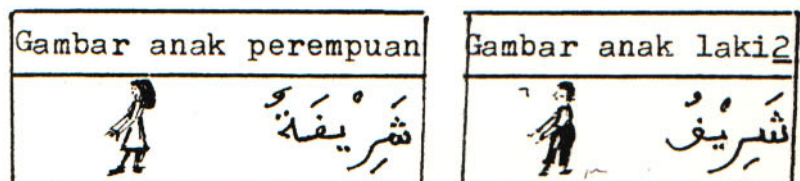 Gambar anak perempuan
شَرِيْفَةٌ
Gambar anak laki2
شَرِيْفٌ